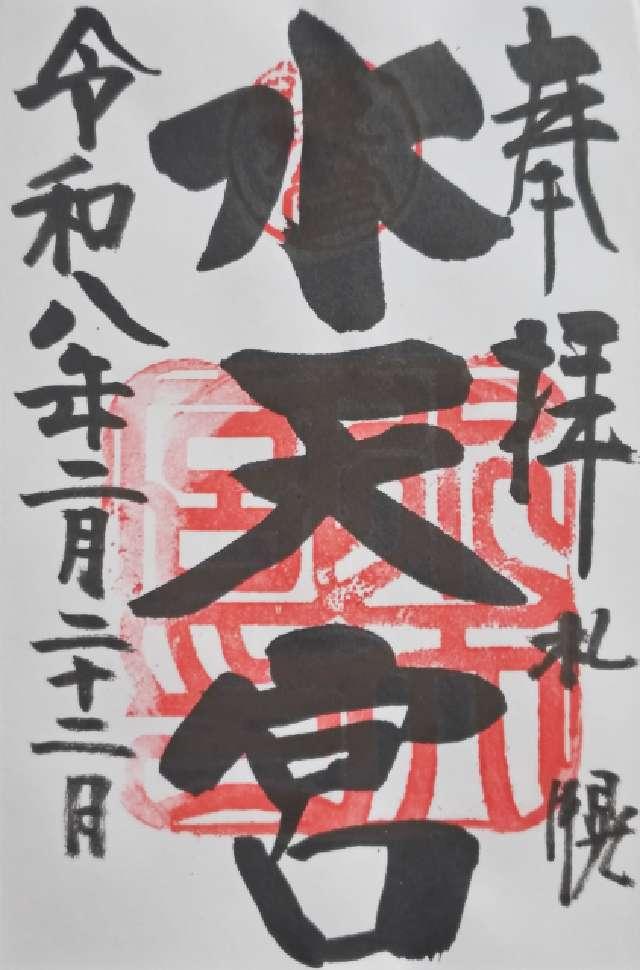 奉拝
札幌
水天宮
令和八年二月二十二日